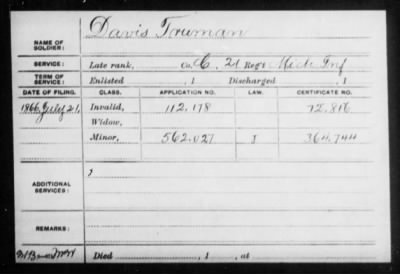 NAME OF SOLDIER: Davis Truman
SERVICE: Late rank, Co. C, 21 Reg't Mich Inf
TERM OF SERVICE: Enlisted , 1 Discharged , 1
DATE OF FILING. CLASS. APPLICATION NO. LAW. CERTIFICATE NO.
1866, July 21, Invalid, 112,178 72,816
Widow,
Minor, 562,027 I 364,744
ADDITIONAL SERVICES:
REMARKS:
Died , 1 , at